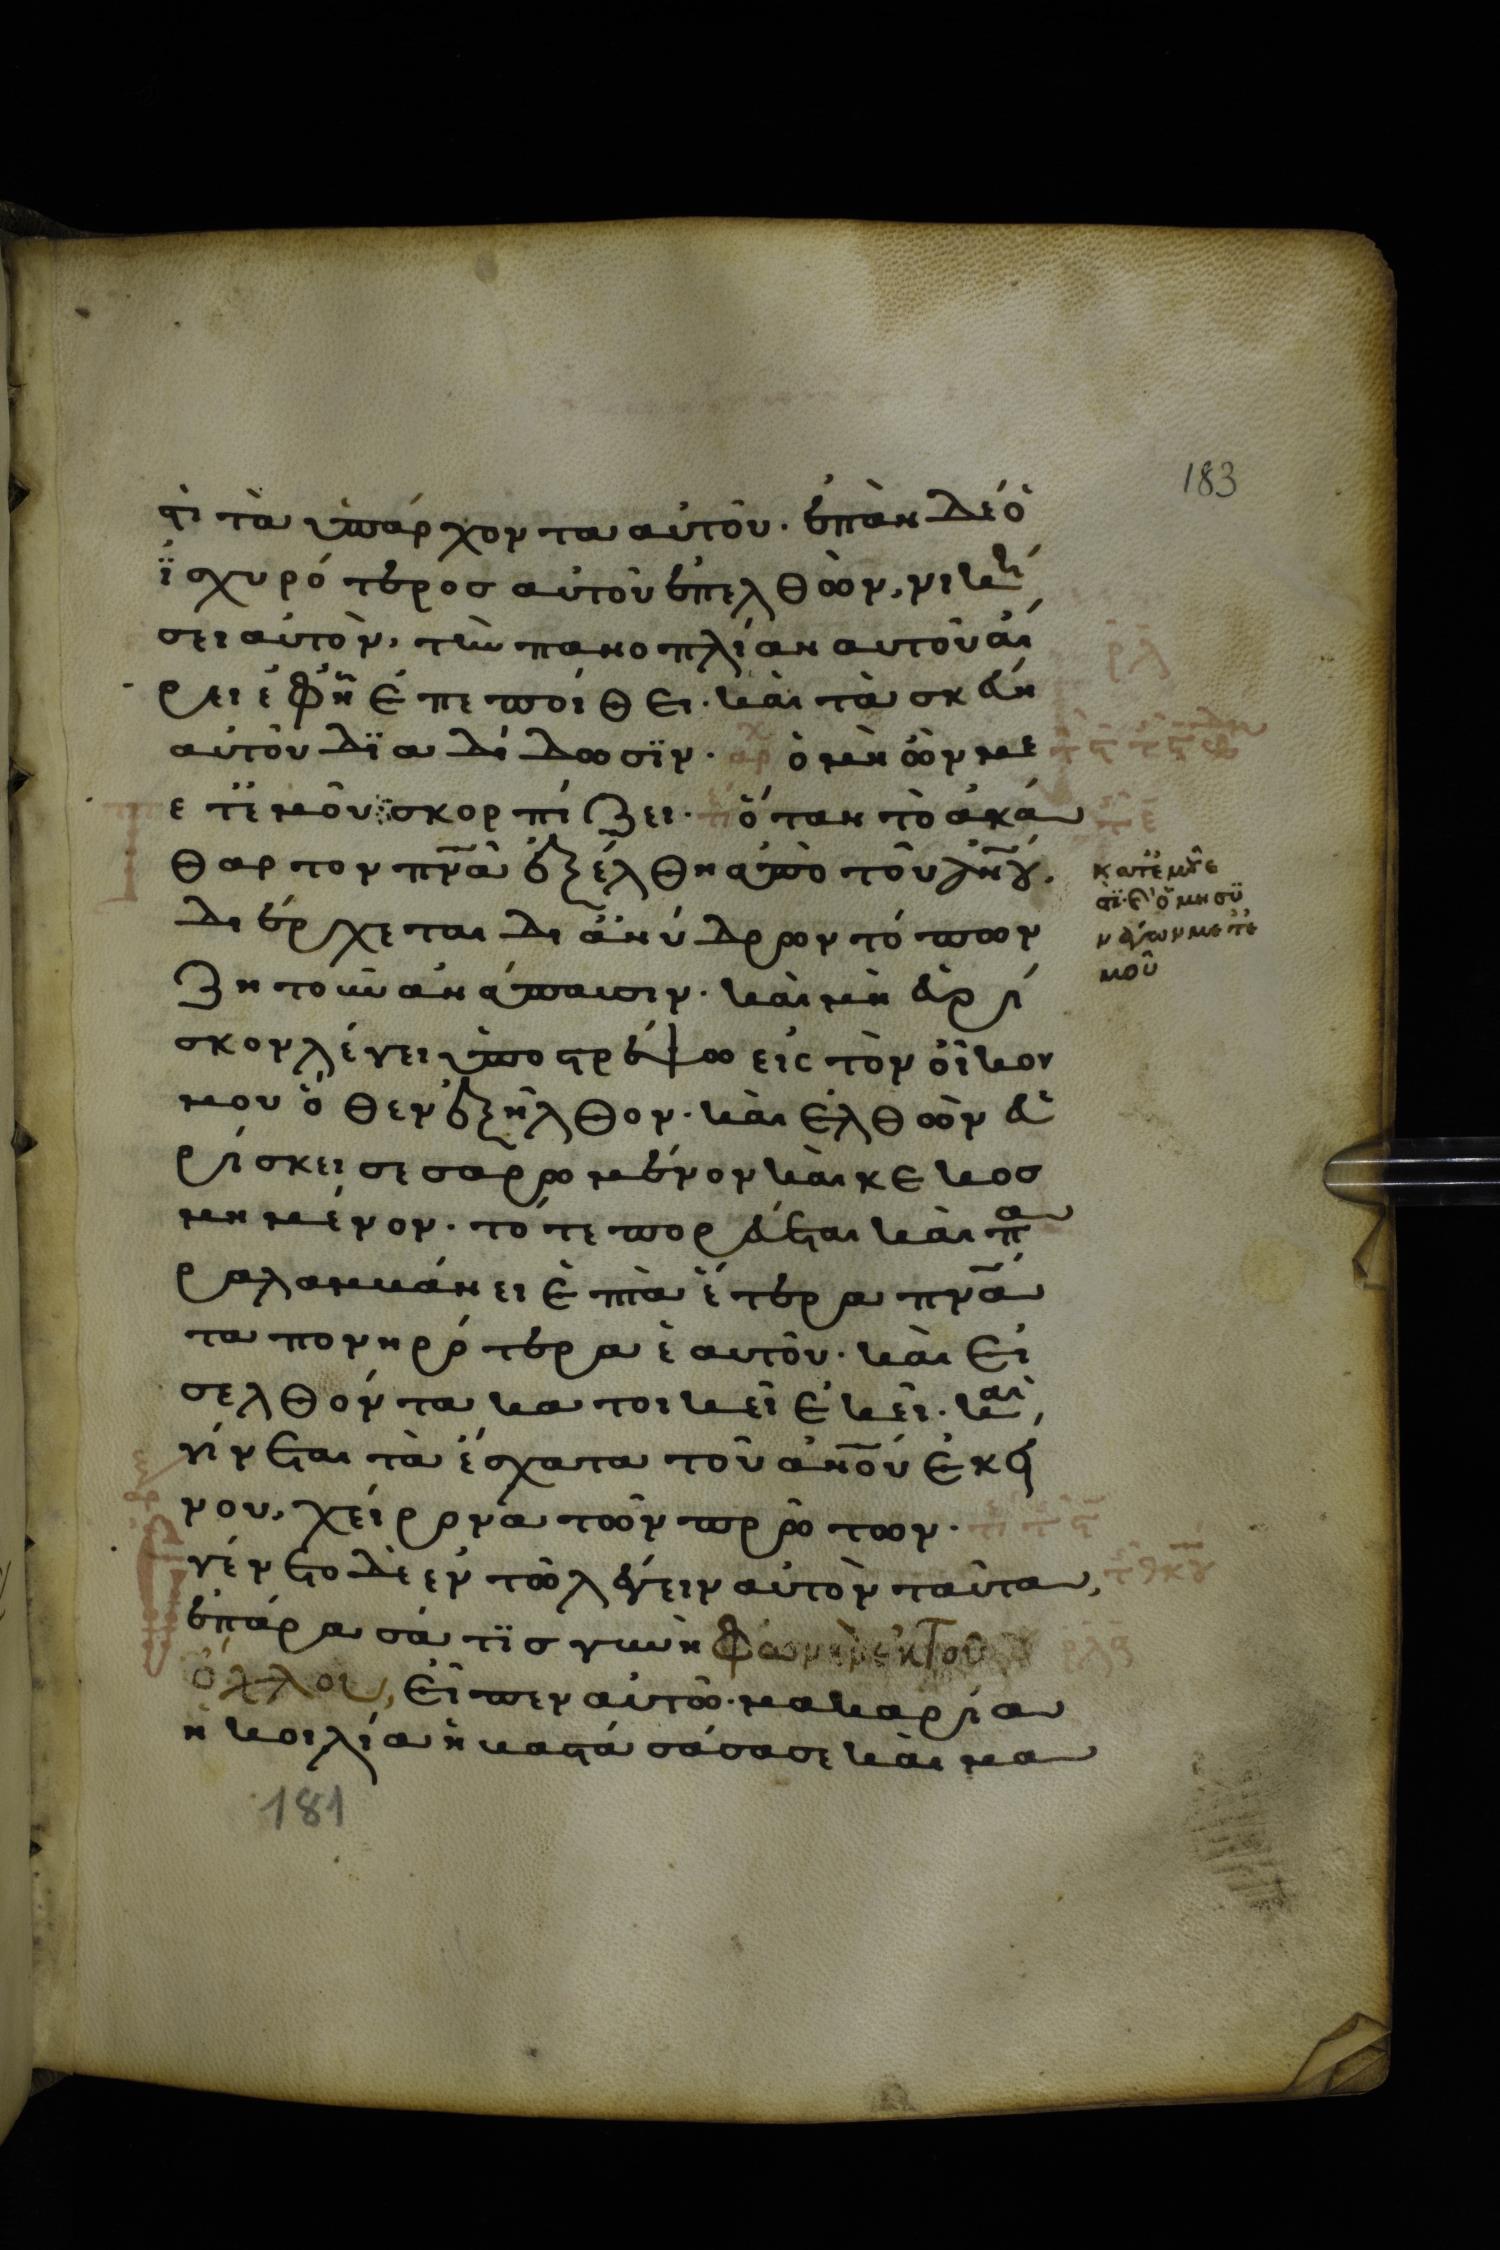 183
στὶ τὰ ὑπάρχοντα αὐτοῦ· ἐπὰν δὲ ὁ
ἰσχυρότερος αὐτοῦ ἐπελθὼν, νικὴ
σει αὐτὸν, τὴν πανοπλίαν αυτοῦ αἴ
ρει ἐφ ᾗ ἐπεποίθει· καὶ τὰ σκεύη
αὐτοῦ διαδίδωσϊν· αρχ ὁ μὴ ὢν με
τ ἐμοῦ σκορπίζει· ὅταν τὸ ἀκά
θαρτον πνᾶ ἐξέλθη ἀπὸ τοῦ ἀνου,
διέρχεται δι ἀνύδρων τόπων
ζητοῦν ἀνάπαυσιν· καὶ μὴ εὑρί
σκον λέγει ὑποστρέψω εἰς τὸν οἶκον
μου ὅθεν ἐξῆλθον· καὶ ἐλθὼν εὑ
ρίσκει σεσαρωμένον καὶ κεκοσ
μημένον· τότε πορεύεται καὶ πα
ραλαμβάνει ἑπτὰ ἕτερα πνα
τα πονηρότερα ἑαυτοῦ· καὶ εἰ
σελθόντα κατοικεῖ ἐκεῖ· καὶ
γίνεται τὰ ἔσχατα τοῦ ἀνου ἐκεί
νου, χείρονα τῶν πρώτων·
γένετο δὲ ἐν τῶ λέγειν αὐτὸν ταῦτα,
ἐπάρασά τϊς γυνὴ φωνὴν ἐκ τοῦ
ὄχλου, εἶπεν αὐτῶ· μακαρία
ἡ κοιλία ἡ βαστάσασά σε καὶ μα
ρλ
κατ ἐμοῦ ἐ
στϊ· καὶ ὁ μὴ συ
νάγων μετ ἐ
μοῦ
ρλς
181